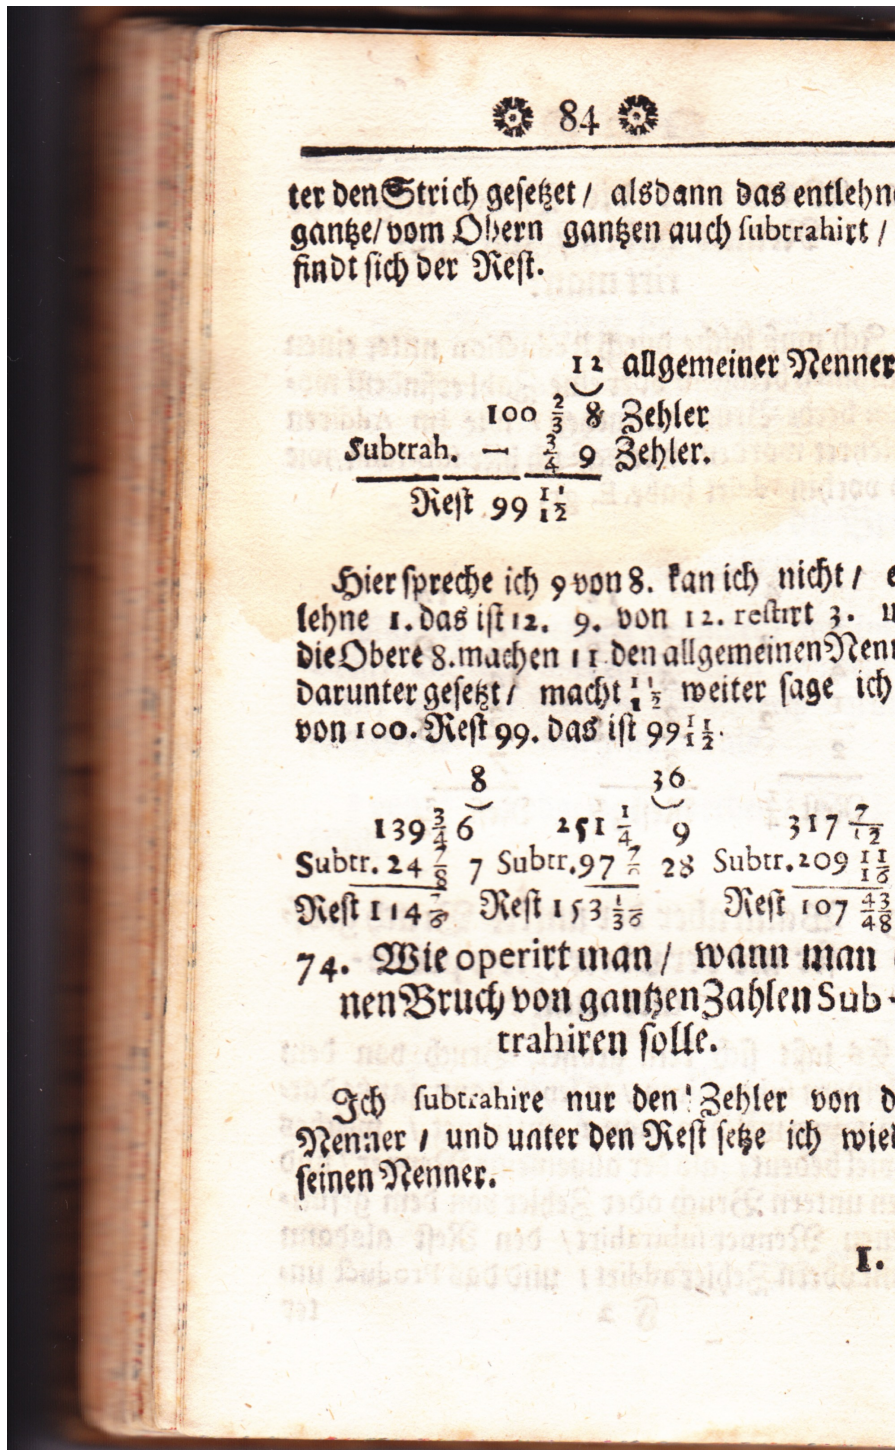 84
ter den Strich gesetzet / alsdann das entlehn
gantze / vom Obern gantzen auch subtrahirt /
findt sich der Rest.
12 allgemeiner Nenner
100 2/3 8 Zehler
Subtrah. — 3/4 9 Zehler.
Rest 99 11/12
Hier spreche ich 9 von 8. kan ich nicht / e
lehne 1. das ist 12. 9. von 12. restirt 3. u
die Obere 8. machen 11 den allgemeinen Nenn
darunter gesetzt / macht 11/12 weiter sage ich
von 100. Rest 99. das ist 99 11/12.
8 36
139 3/4 6 251 1/4 9 317 7/12
Subtr. 24 7/8 7 Subtr. 97 28 Subtr. 209 11/16
Rest 114 7/8 Rest 153 Rest 107 43/48
74. Wie operirt man / wann man
nen Bruch von gantzen Zahlen Sub-
trahiren solle.
Ich subtrahire nur den Zehler von d
Nenner / und unter den Rest setze ich wie
seinen Nenner.
1.